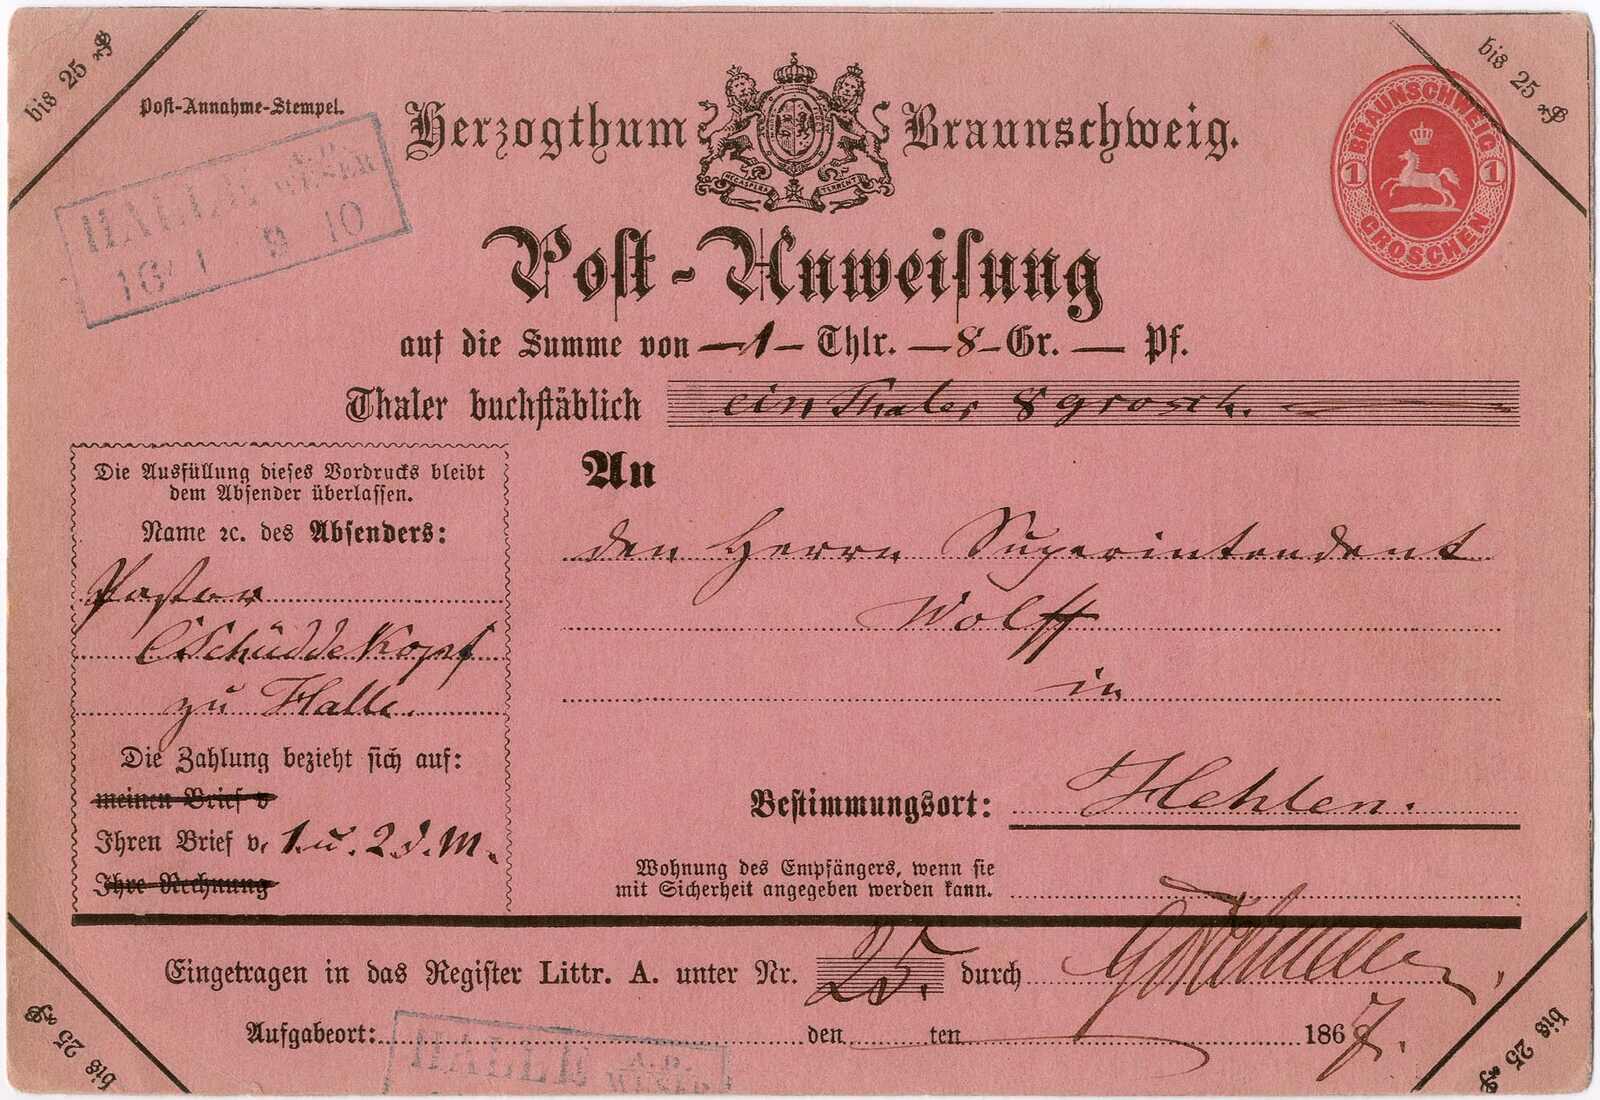 bis 25 ₰
bis 25 ₰
Post-Annahme-Stempel.
HALLE A.D. WESER
16/1 9 10
Herzogthum Braunschweig.
NEC ASPERA TERRENT
BRAUNSCHWEIG
1 1
GROSCHEN
Post-Anweisung
auf die Summe von —1— Thlr. —8— Gr. — Pf.
Thaler buchstäblich ein Thaler 8 grosch.
Die Ausfüllung dieses Vordrucks bleibt
dem Absender überlassen.
Name ꝛc. des Absenders:
Pastor
CSchüddekopf
zu Halle.
Die Zahlung bezieht sich auf:
meinen Brief v
Ihren Brief v. 1. u. 2. d. M.
Ihre Rechnung
An
den Herrn Superintendent
Wolff
in
Bestimmungsort: Hehlen.
Wohnung des Empfängers, wenn sie
mit Sicherheit angegeben werden kann.
Eingetragen in das Register Littr. A. unter Nr. 25. durch
Aufgabeort: HALLE A.D. WESER den ten 1867.
bis 25 ₰
bis 25 ₰